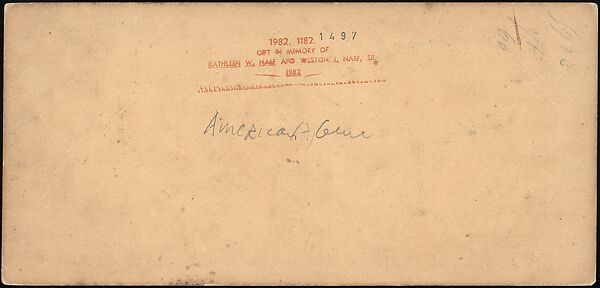 1982. 1182. 1497
GIFT IN MEMORY OF
KATHLEEN W. NAEF AND WESTON J. NAEF, SR.
1982
American